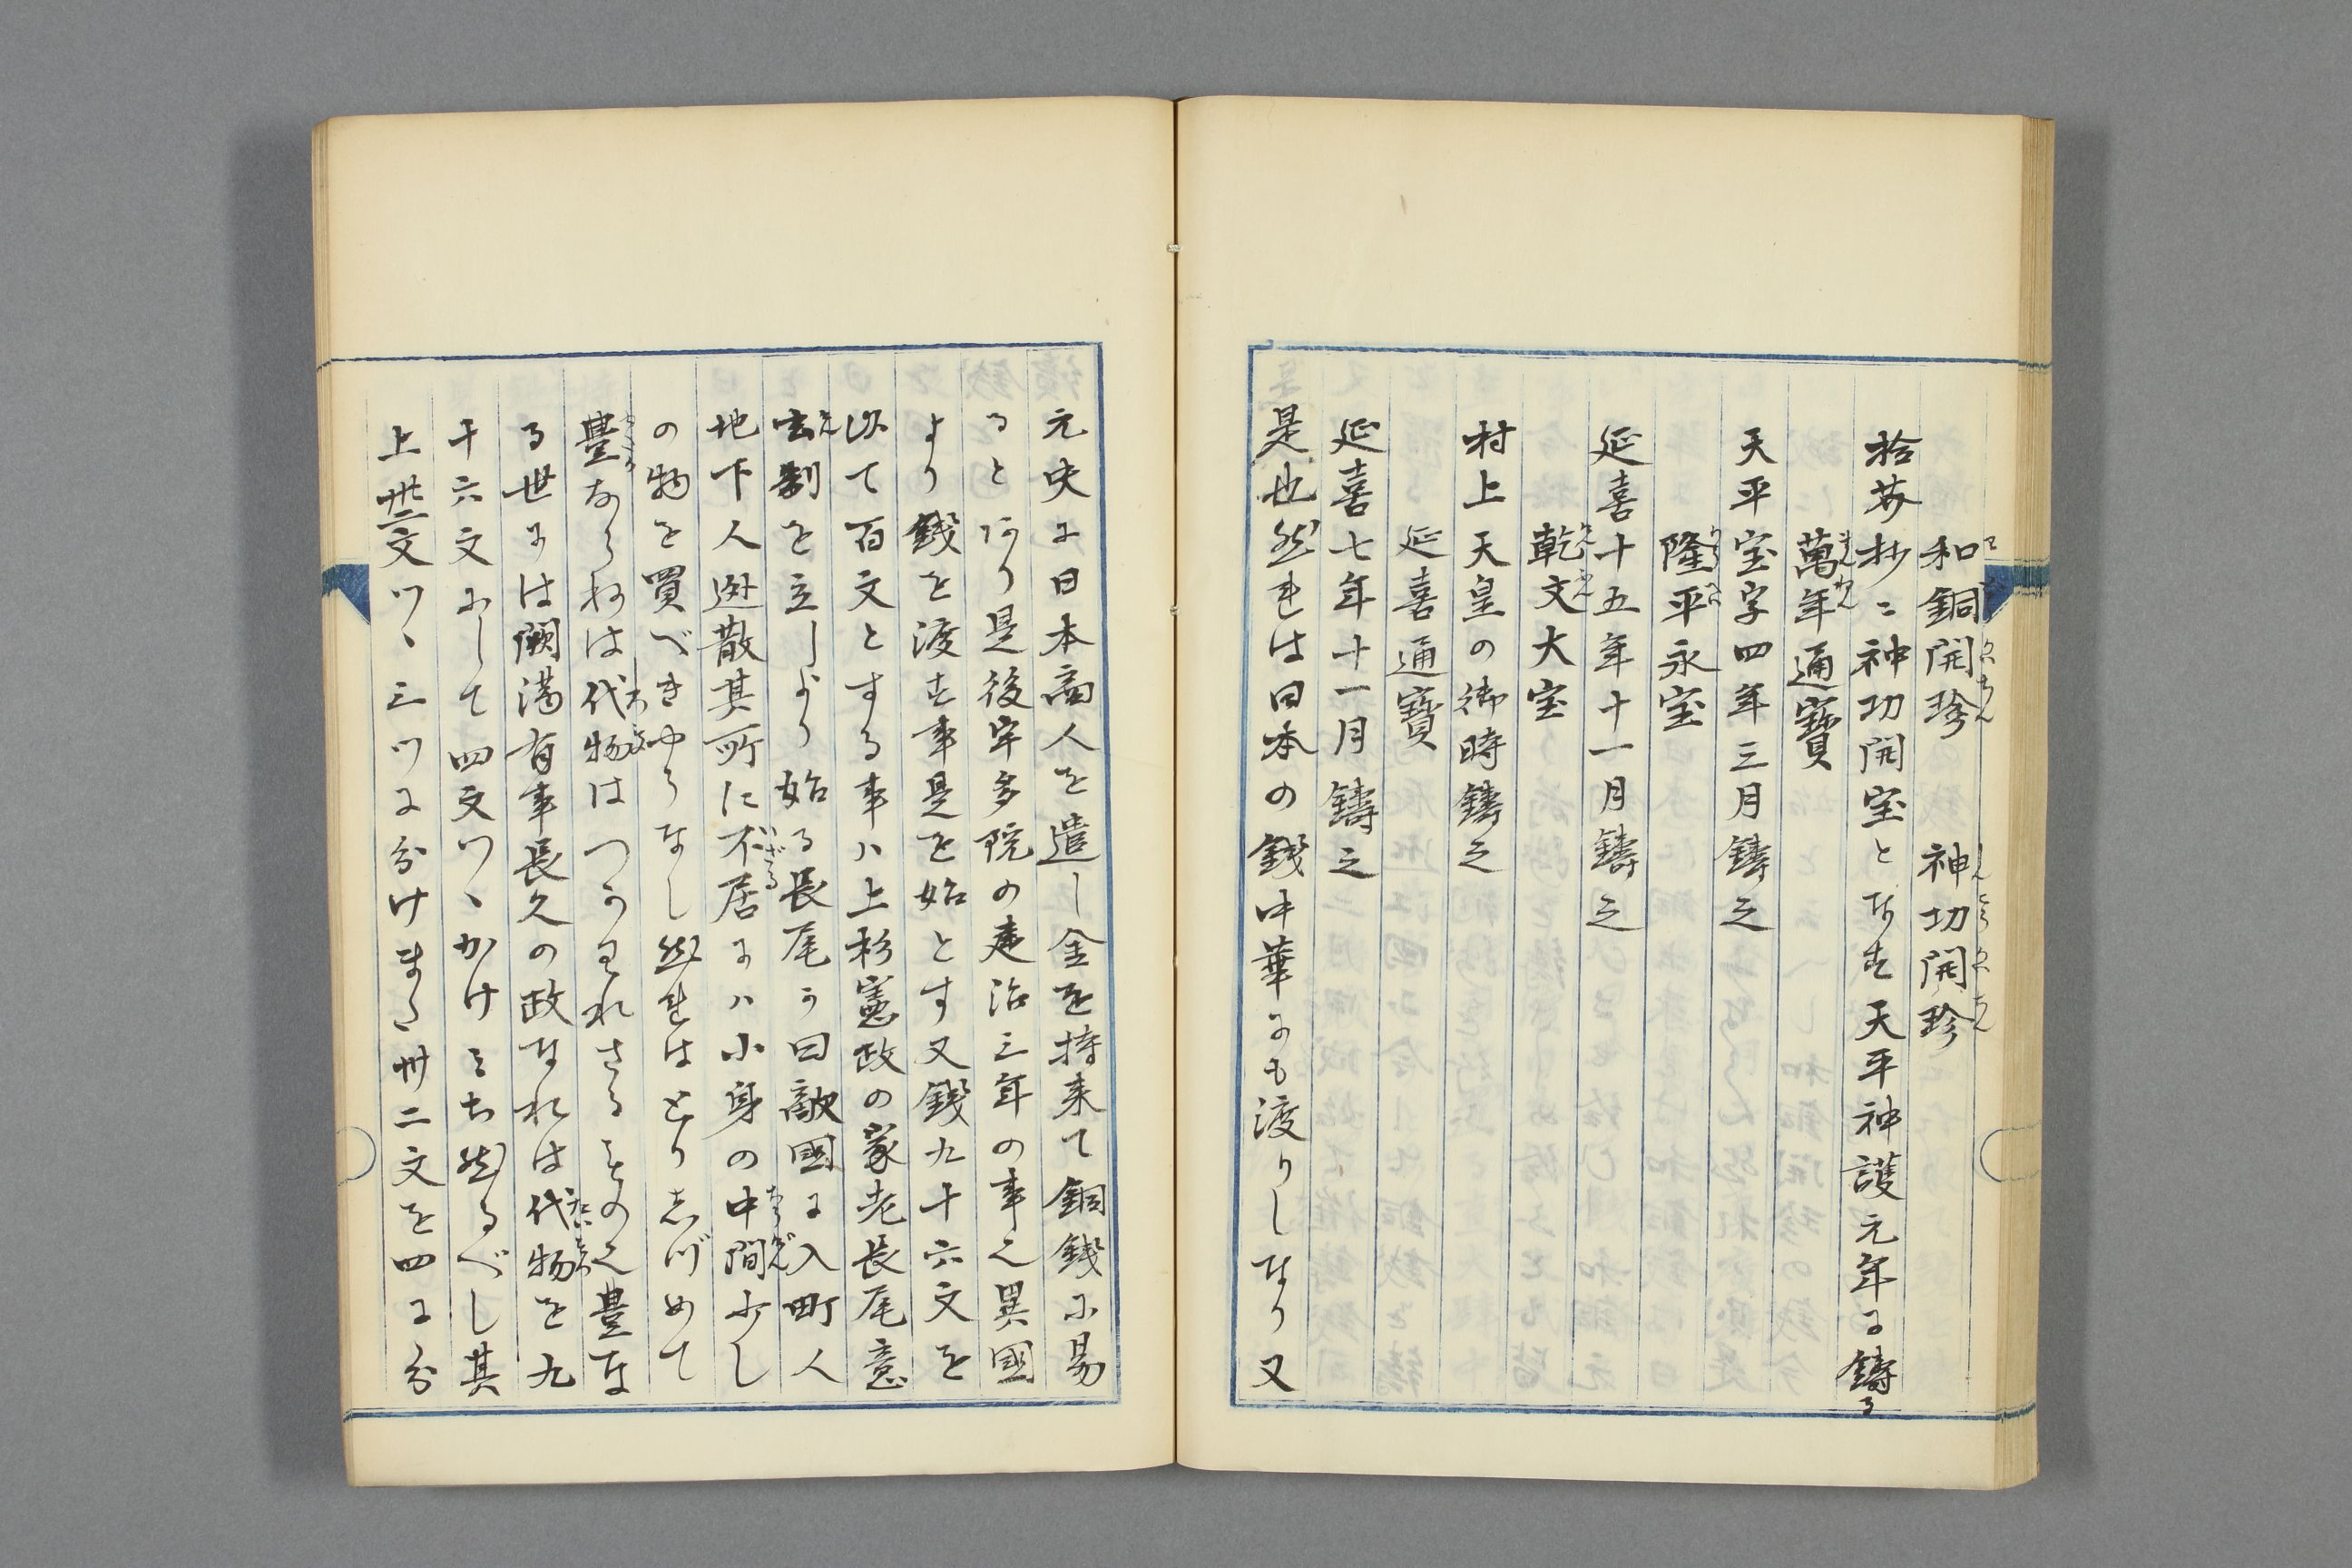 和銅開珎 神功開珎
拾芥抄ニ神功開宝となす天平神護元年に鋳る
萬年通寳
天平宝字四年三月鋳之
隆平永宝
延喜十五年十一月鋳之
乾文大宝
村上天皇の御時鋳之
延喜通寳
延喜七年十一月鋳之
是也然れは日本の銭中華にも渡りしなり又
元史に日本商人を遣し金を持来て銅銭に易
ると有り是後宇多院の建治三年の事也異國
より銭を渡す事是を始とす又銭九十六文を
以て百文とする事ハ上杉憲政の家老長尾意
玄制を立しより始る長尾か曰敵國に入町人
地下人逃散其所に不居にハ小身の中間少し
の物を買べきやうなし然れはとりしづめて
豊ならねは代物はつかわれさるもの也豊な
る世には闕満有事長久の政なれは代物を九
十六文にして四文つゝかけ然るべし其
上卅二文つゝ三つに分けまた卅二文を四に分